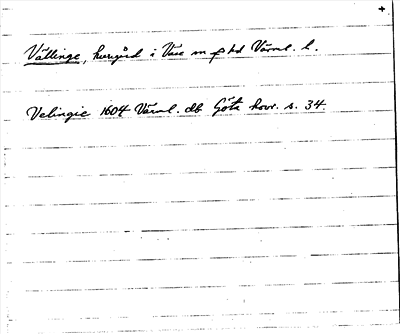 +
Vällinge, herrgård i Väse sn o hd Värml. l.
Velingie 1604 Värml. db Göta hovr. s. 34